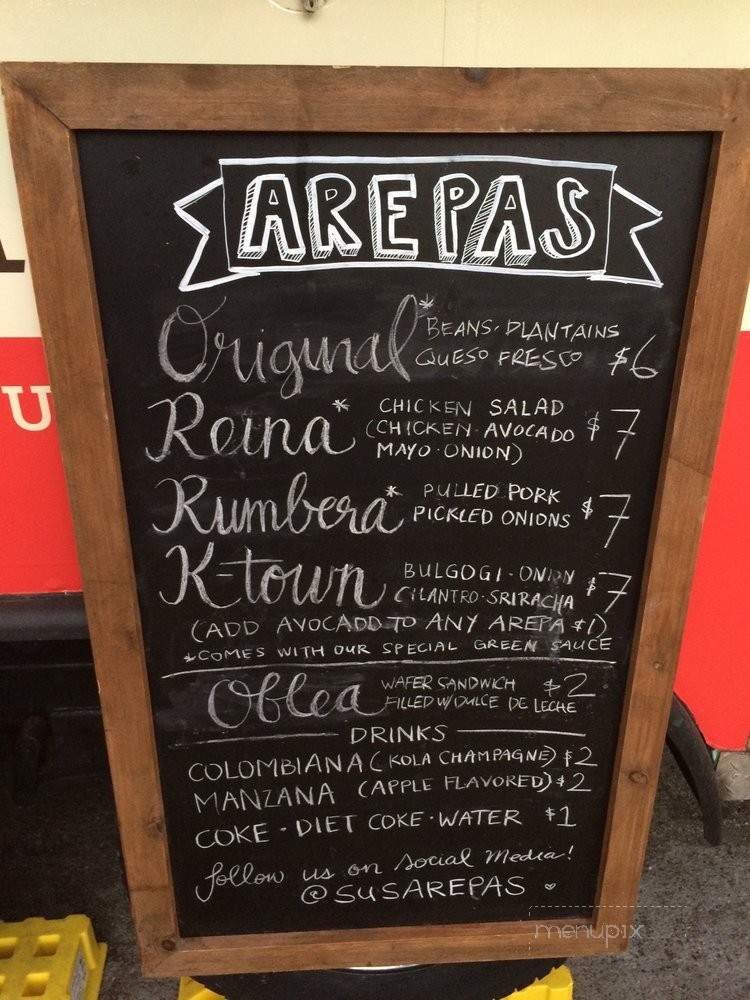 AREPAS
Original* BEANS · PLANTAINS
QUESO FRESCO $6
Reina* CHICKEN SALAD
(CHICKEN · AVOCADO $7
MAYO · ONION)
Rumbera* PULLED PORK
PICKLED ONIONS $7
K-town BULGOGI · ONION
CILANTRO · SRIRACHA $7
(ADD AVOCADO TO ANY AREPA $1)
*COMES WITH OUR SPECIAL GREEN SAUCE
Oblea WAFER SANDWICH $2
FILLED W/ DULCE DE LECHE
DRINKS
COLOMBIANA (KOLA CHAMPAGNE) $2
MANZANA (APPLE FLAVORED) $2
COKE · DIET COKE · WATER $1
follow us on social media!
@SUSAREPAS
menupix
U